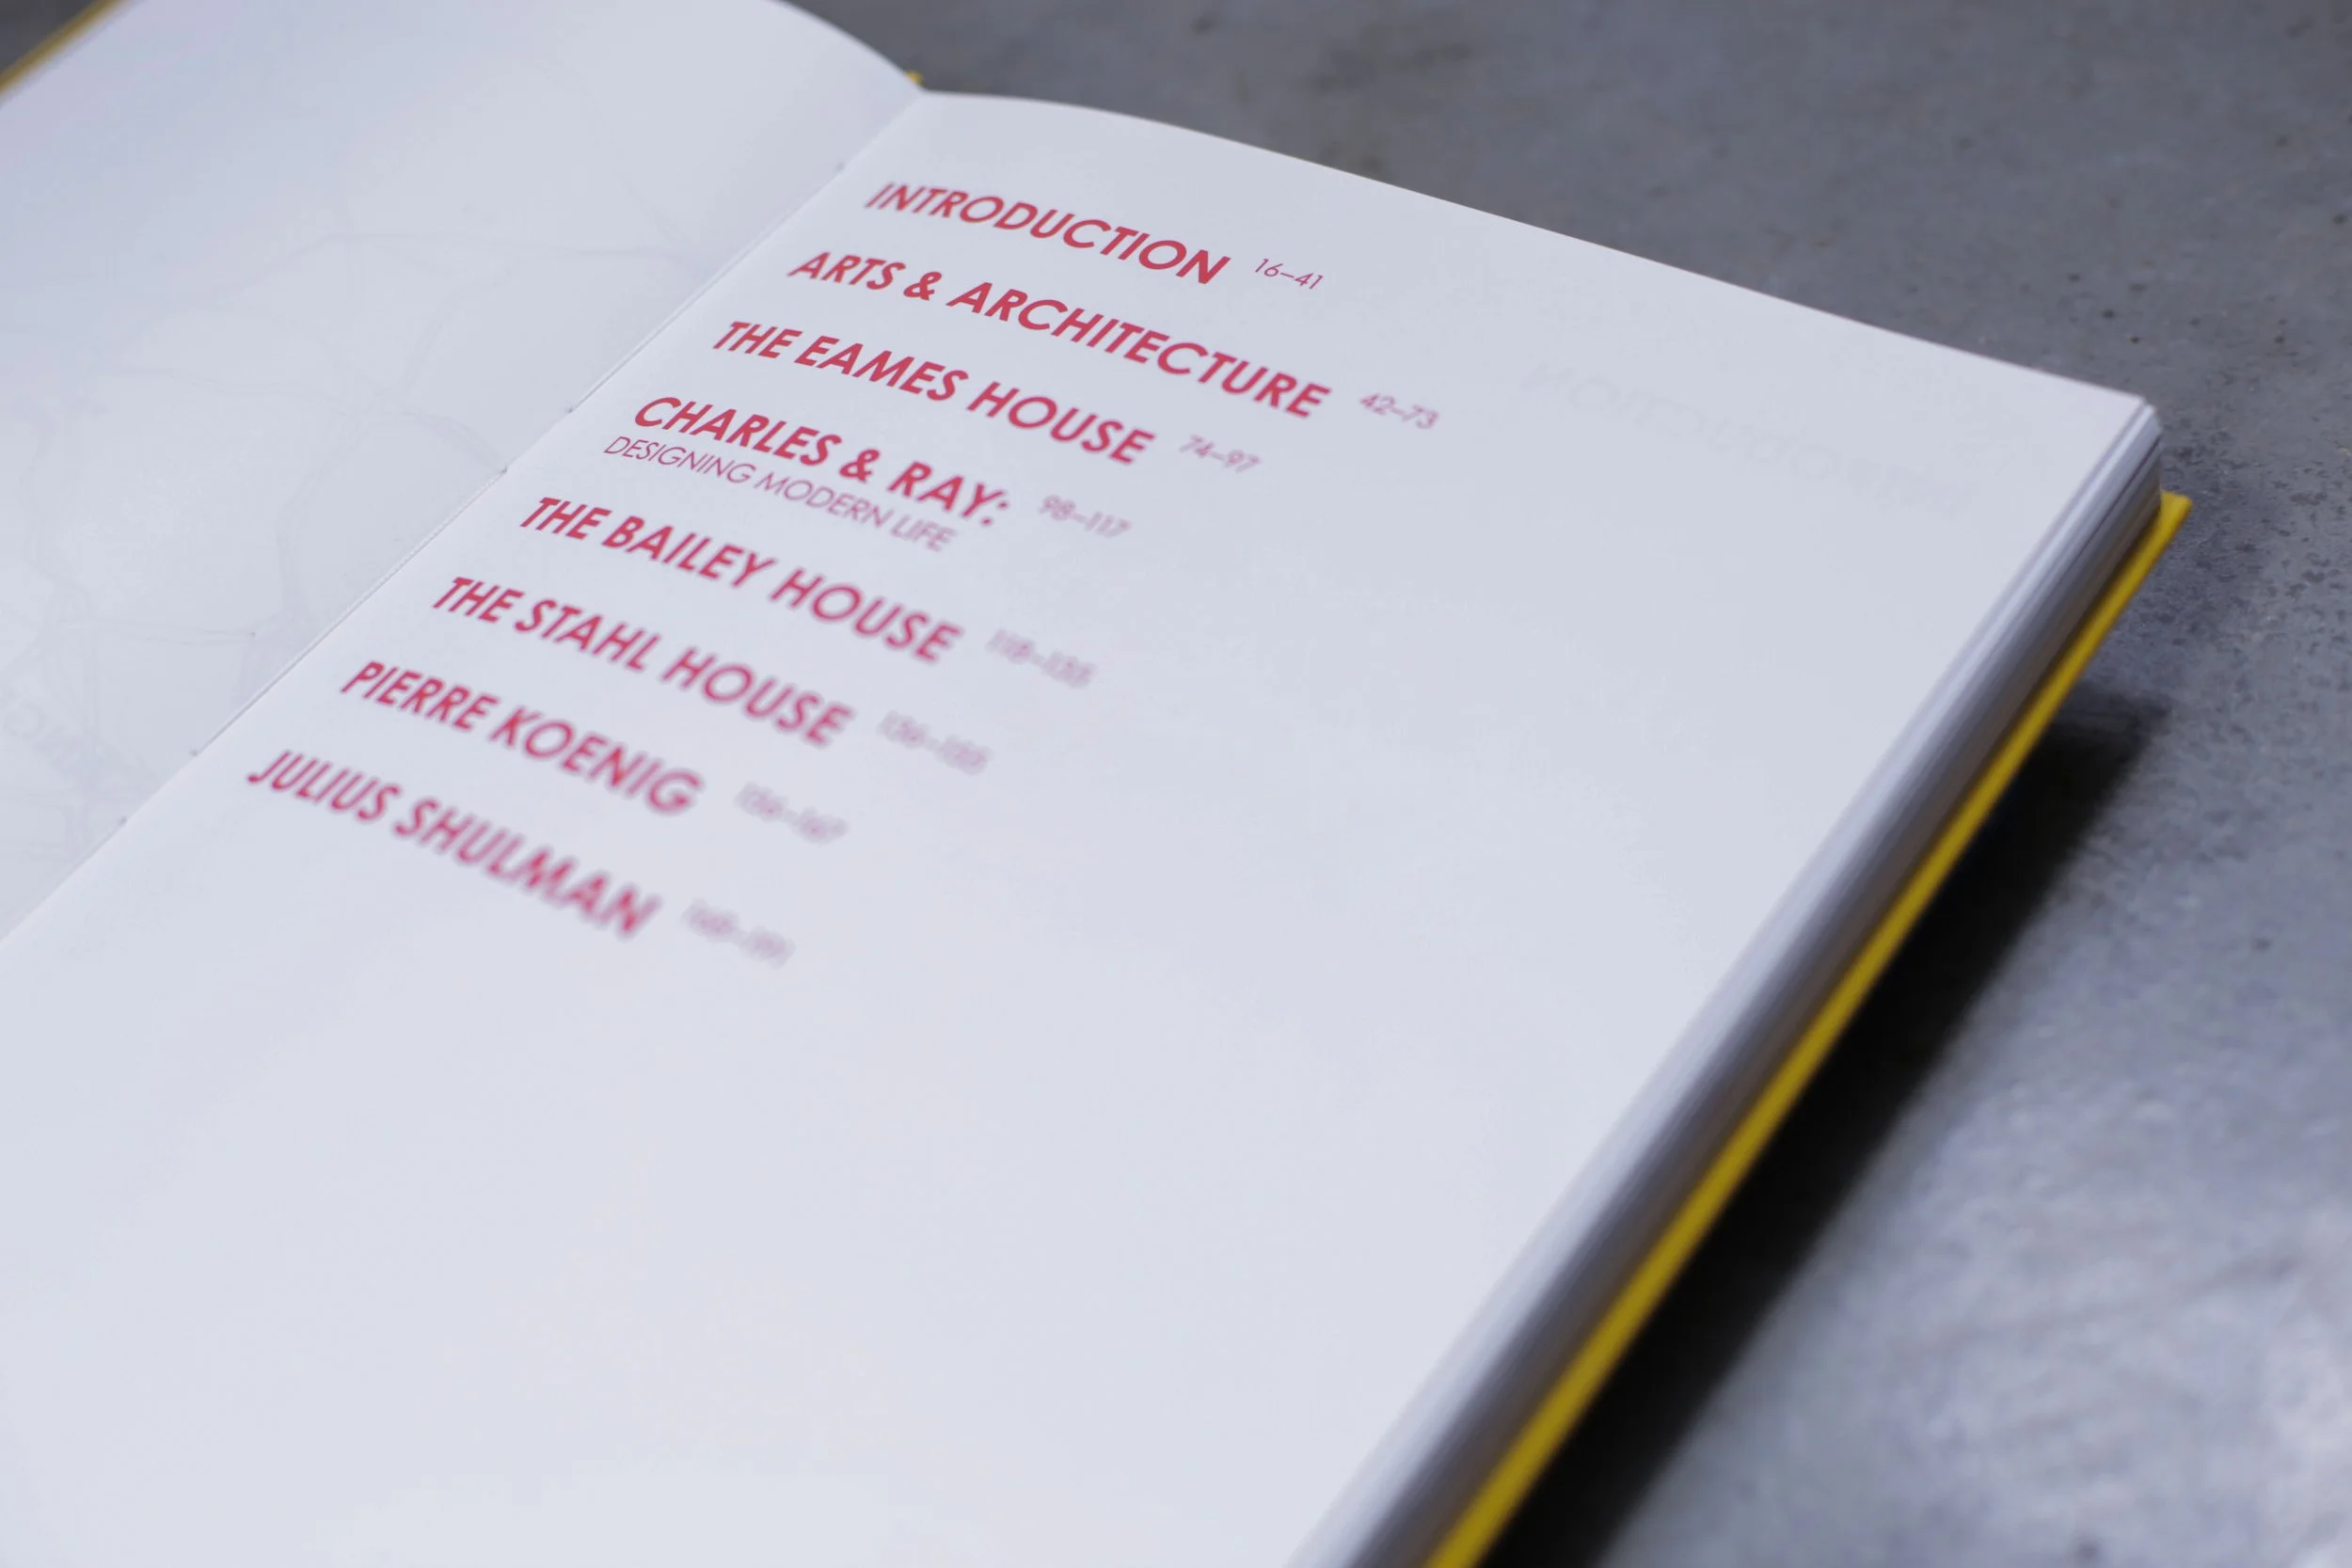 INTRODUCTION 16–41
ARTS & ARCHITECTURE 42–73
THE EAMES HOUSE 74–97
CHARLES & RAY: 98–117
DESIGNING MODERN LIFE
THE BAILEY HOUSE 118–135
THE STAHL HOUSE
PIERRE KOENIG
JULIUS SHULMAN